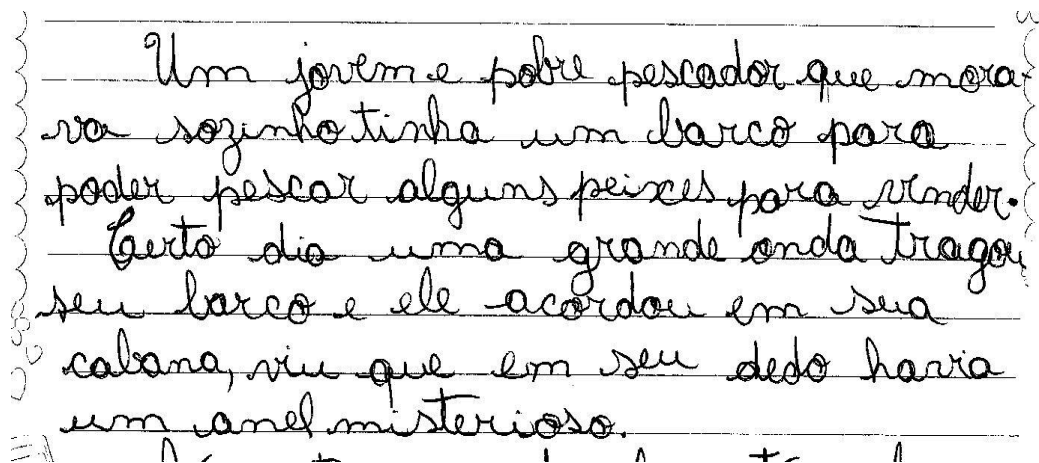 Um jovem e pobre pescador que mora-
va sozinho tinha um barco para
poder pescar alguns peixes para vender.
Certo dia uma grande onda tragou
seu barco e ele acordou em sua
cabana, viu que em seu dedo havia
um anel misterioso.